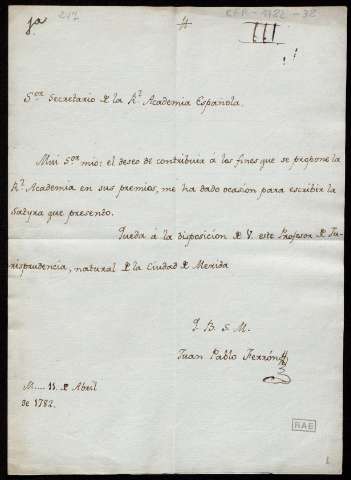 ja 217 # CER-1782-38
III
S.or Secretario de la R.l Academia Española.
Mui S.or mio: el deseo de contribuir á los fines que se propone la
R.l Academia en sus premios, me ha dado ocasion para escribir la
Satyra que presento.
Queda á la disposicion de V. este Profesor de Ju-
risprudencia, natural de la Ciudad de Merida
Q. B. S. M.
Juan Pablo Ferrón
M.... 11 de Abril
de 1782.
RAE
1